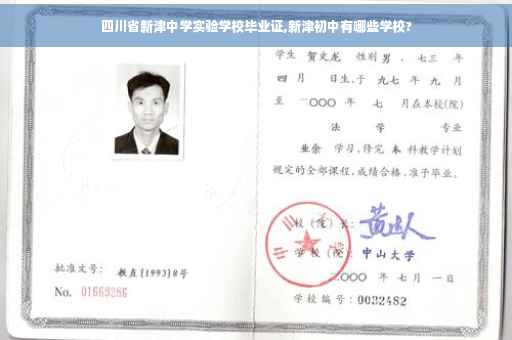 四川省新津中学实验学校毕业证,新津初中有哪些学校?
学生 贺文龙 性别 男 、七三 年
四 月 日生,于 九七 年 九 月
至 二〇〇〇 年 七 月在本校(院)
法 学 专业
业余 学习,修完 本 科教学计划
规定的全部课程,成绩合格,准予毕业。
校(院)长:
学校(院):中山大学
二〇〇〇 年 七 月 一 日
批准文号: 教直[1993]8号
No. 01669286
学校编号:0032482